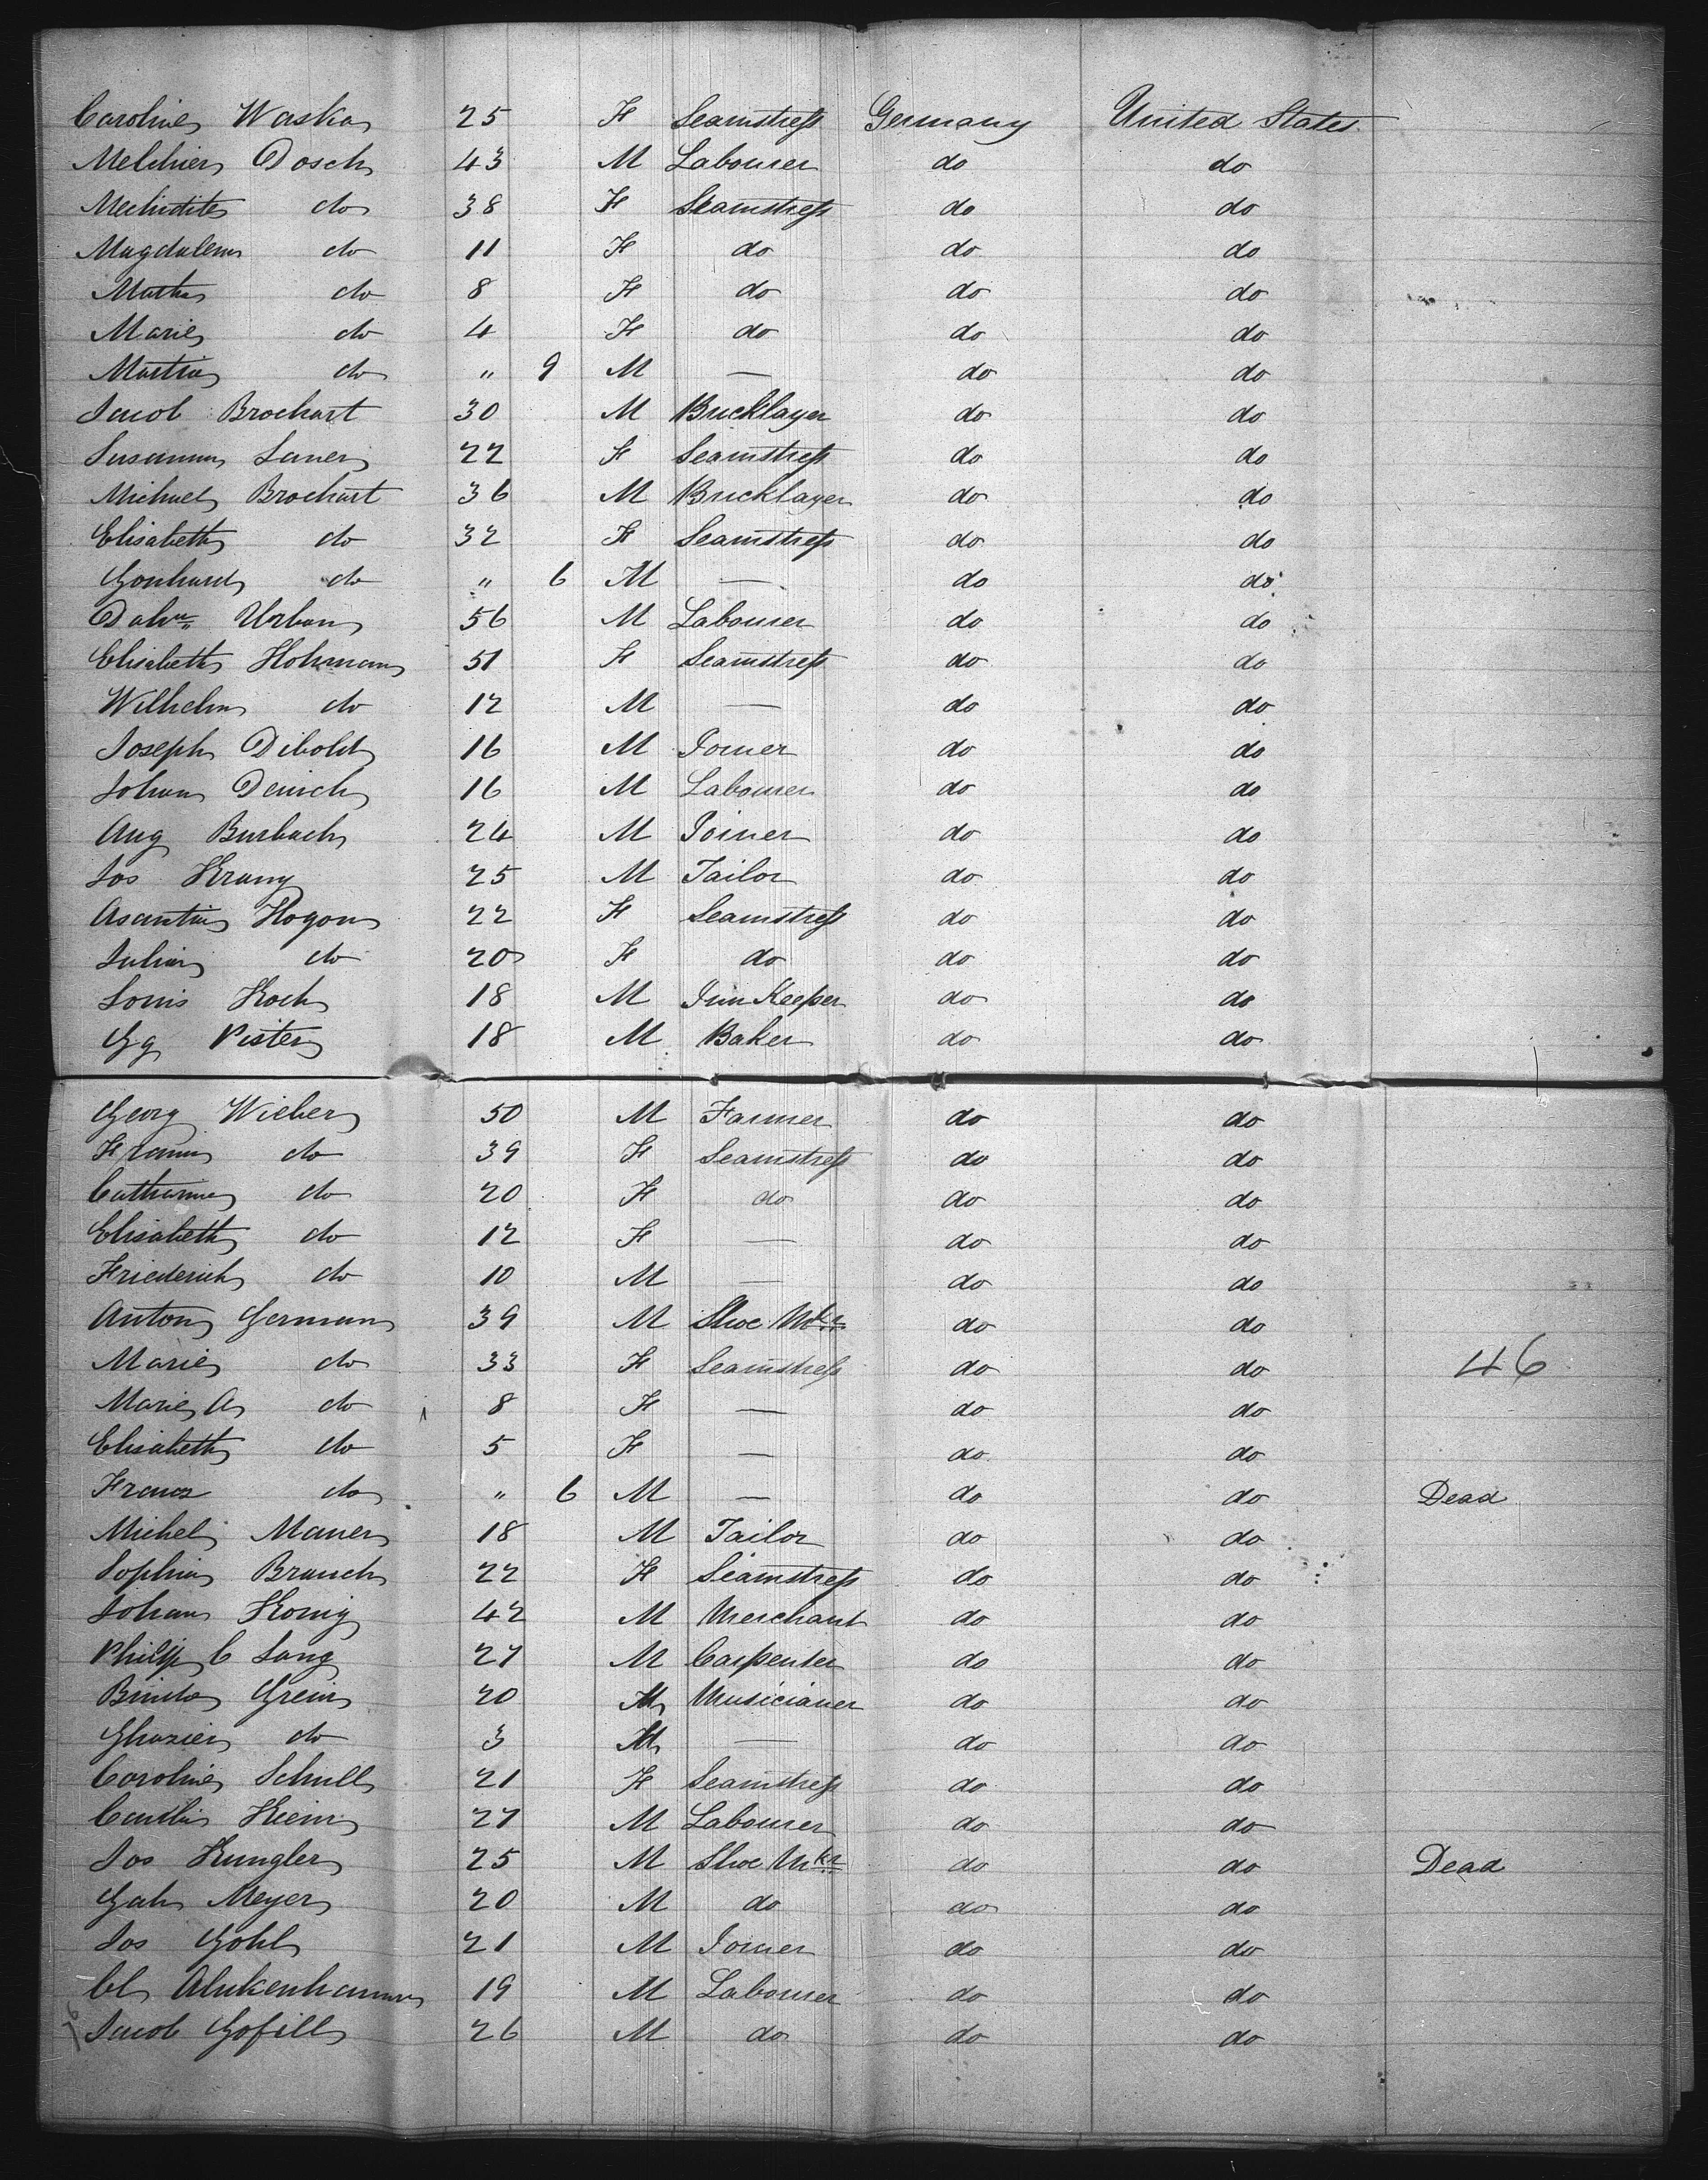 Caroline Waska 25 F Seamstress Germany United States
Melchior Dosch 43 M Labourer do do
do 38 F Seamstress do do
Magdalena do 11 F do do do
Martha do 8 F do do do
Marie do 4 F do do do
Martin do " 9 M — do do
Jacob Brochart 30 M Bricklayer do do
Susanna Lauer 22 F Seamstress do do
Michael Brochart 36 M Bricklayer do do
Elisabeth do 32 F Seamstress do do
Gonhard do " 6 M — do do
Urban 56 M Labourer do do
Elisabeth Hohmann 51 F Seamstress do do
Wilhelm do 12 M — do do
Joseph Dibold 16 M Joiner do do
Johann Denich 16 M Labourer do do
Aug Burbach 24 M Joiner do do
Jos Krany 25 M Tailor do do
Hogon 22 F Seamstress do do
Julian do 20 F do do do
Louis Koch 18 M Inn Keeper do do
Gg Pister 18 M Baker do do
Georg Wieber 50 M Farmer do do
do 39 F Seamstress do do
Catharina do 20 F do do do
Elisabeth do 12 F — do do
Friederich do 10 M — do do
Anton Germann 39 M Shoe Mkr do do
Marie do 33 F Seamstress do do 46
Marie A do 8 F — do do
Elisabeth do 5 F — do do
Franz do " 6 M — do do Dead
Michel Mauer 18 M Tailor do do
Sophia Brauch 22 F Seamstress do do
Johann Konig 42 M Merchant do do
Philip C Lang 27 M Carpenter do do
Grein 20 M Musicianer do do
do 3 M — do do
Caroline Schull 21 F Seamstress do do
Hein 27 M Labourer do do
Jos Kungler 25 M Shoe Mkr do do Dead
Gab Meyer 20 M do do do
Jos Gohl 21 M Joiner do do
Cl 19 M Labourer do do
Jacob Gofill 26 M do do do